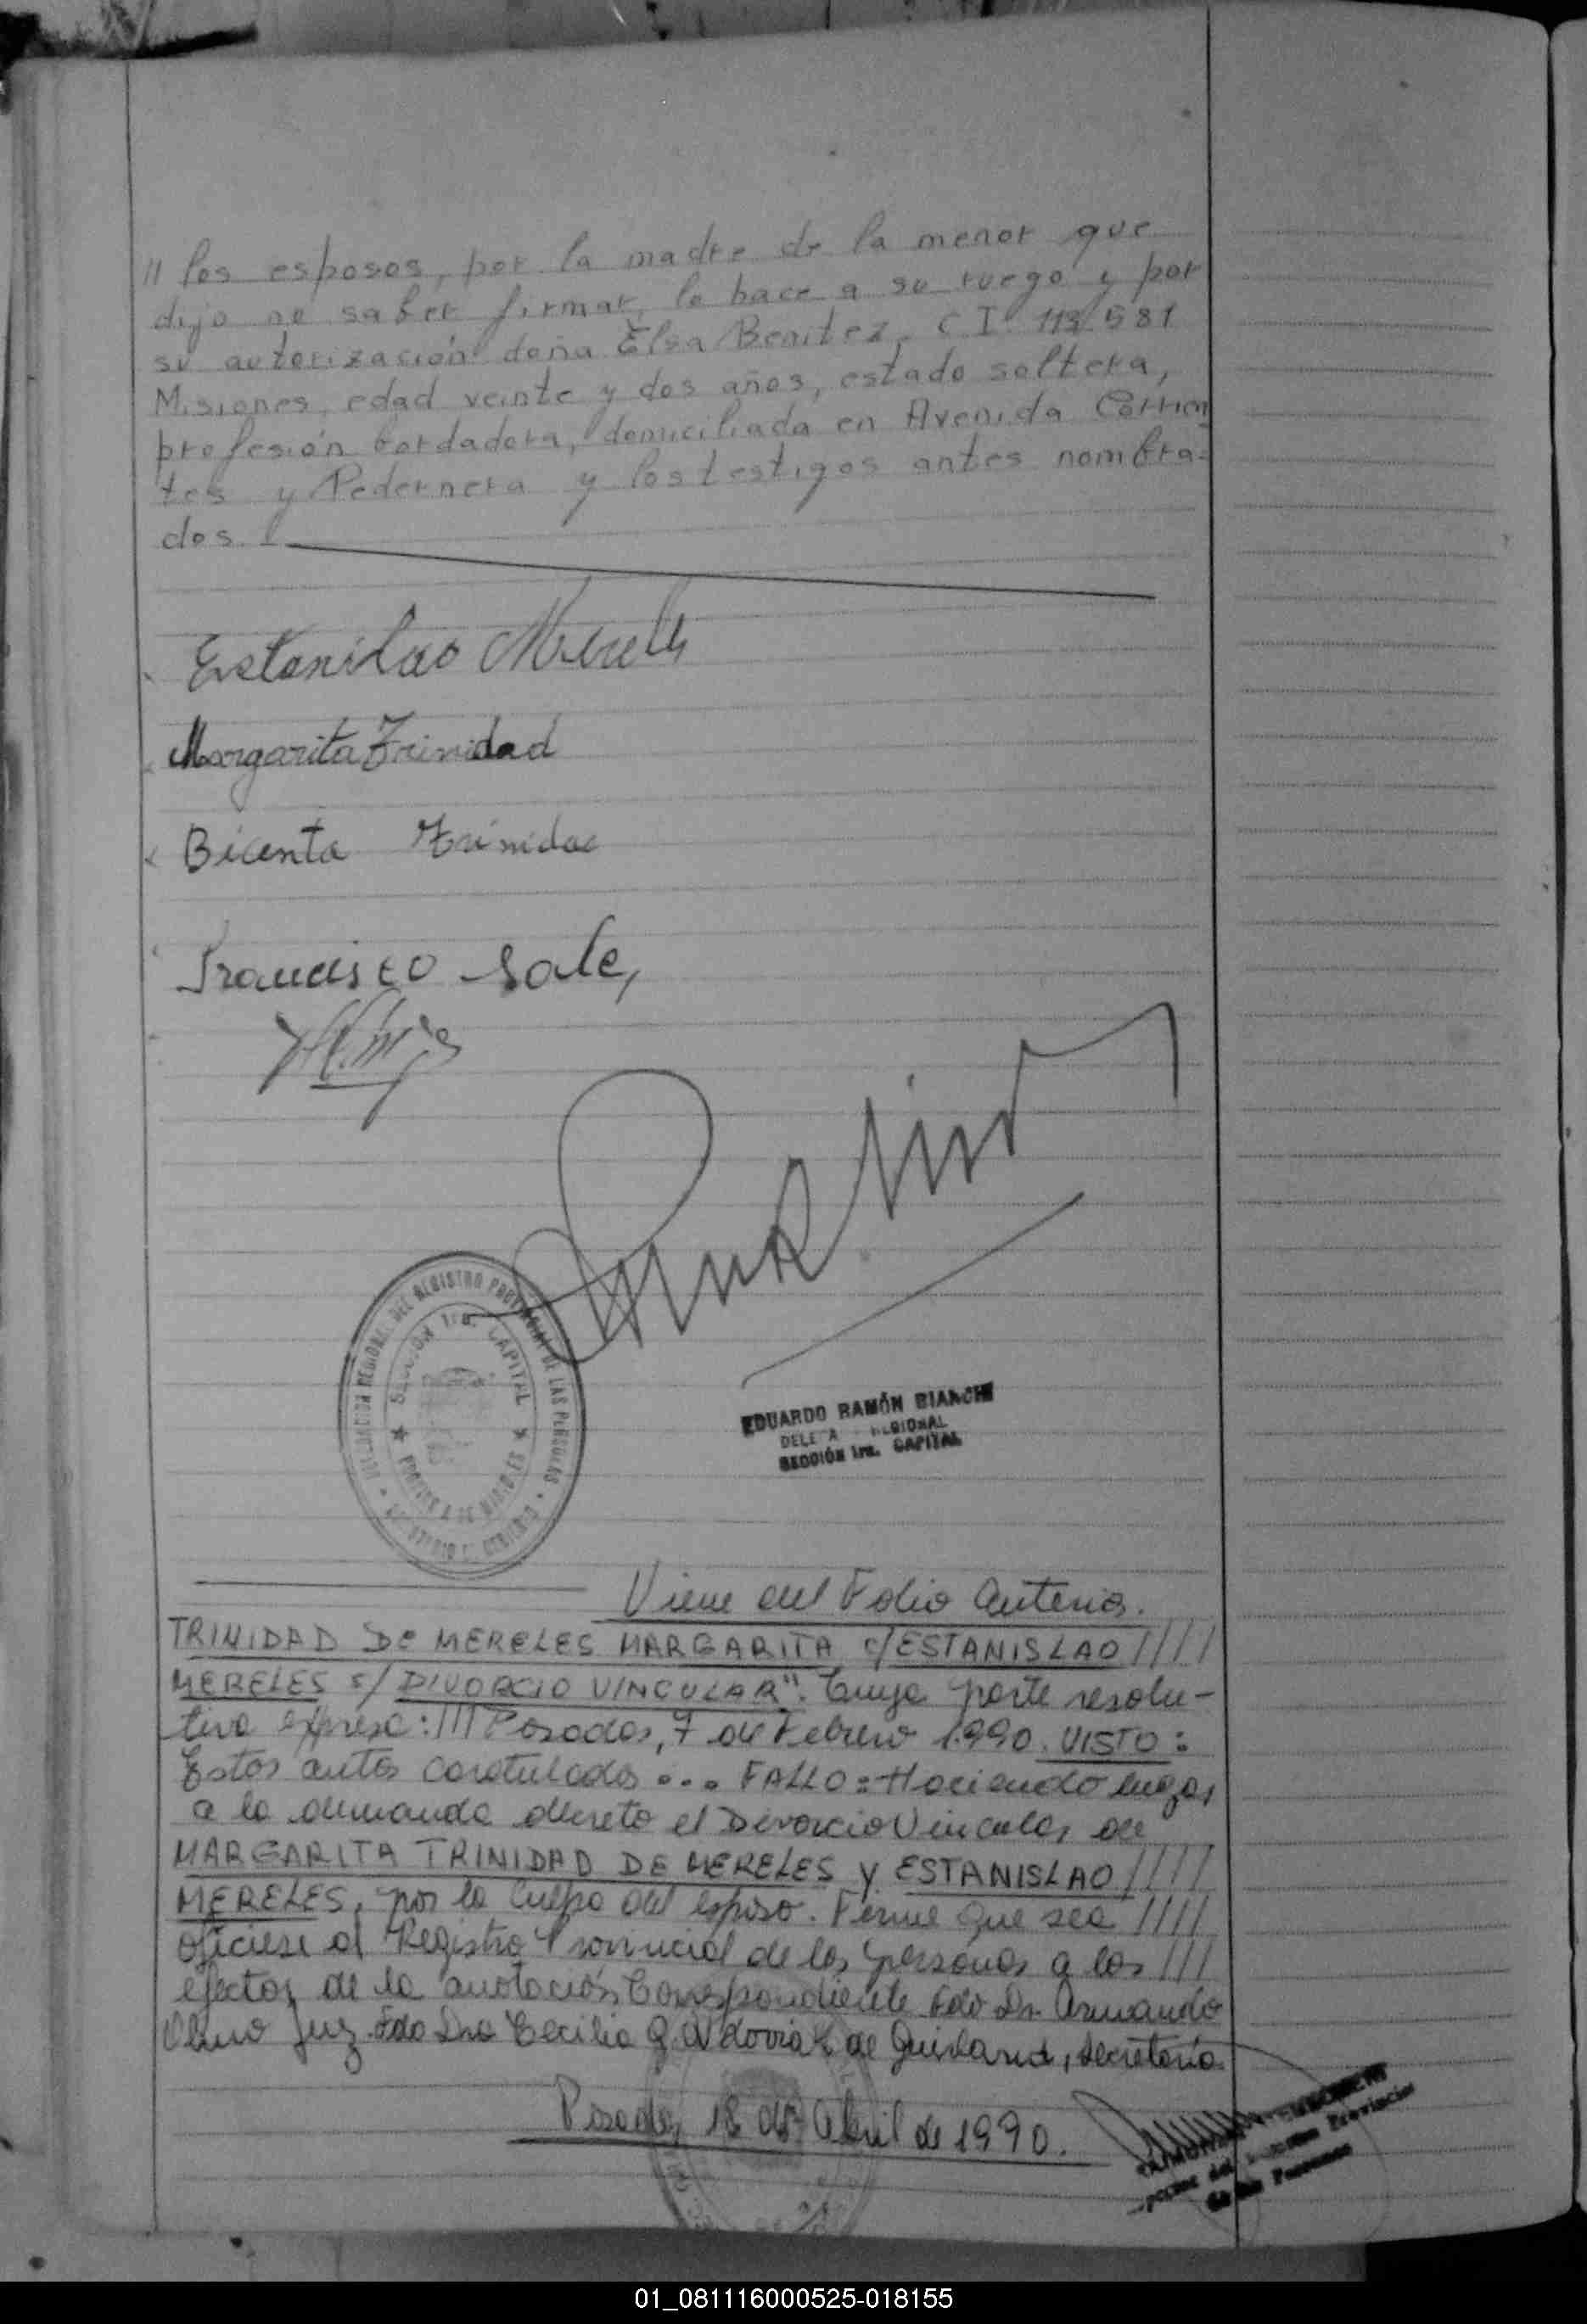 // los esposos, por la madre de la menor que
dijo no saber firmar, lo hace a su ruego y por
su autorización doña Elsa Benitez, C I. 113.581
Misiones, edad veinte y dos años, estado soltera,
profesión bordadora, domiciliada en Avenida Corrien
tes y Pedernera y los testigos antes nombra=
dos.
Estanislao Mereles
Margarita Trinidad
Bicenta Trinidad
Francisco
DELEGACION REGIONAL DEL REGISTRO PROVINCIAL DE LAS PERSONAS
SECCION 1ra. CAPITAL
PROVINCIA DE MISIONES
EDUARDO RAMÓN BIANCHI
DELEGADO REGIONAL
SECCIÓN 1ra. CAPITAL
Viene del Folio anterior.
TRINIDAD DE MERELES MARGARITA c/ ESTANISLAO ////
MERELES s/ DIVORCIO VINCULAR". Cuya parte resolu-
tiva expresa: /// Posadas, 7 de Febrero 1.990. VISTO:
Estos autos caratulados ... FALLO: Haciendo lugar
a la demanda decreto el Divorcio Vincular de
MARGARITA TRINIDAD DE MERELES Y ESTANISLAO ////
MERELES, por la culpa del esposo. Firme que sea ////
ofíciese al Registro Provincial de las personas a los ///
efectos de la anotación Correspondiente Fdo Dr. Armando
Juez. Fdo Dra Cecilia G. de Secretaria.
Posadas 18 de Abril de 1990.
Provincial
de las Personas
01_081116000525-018155